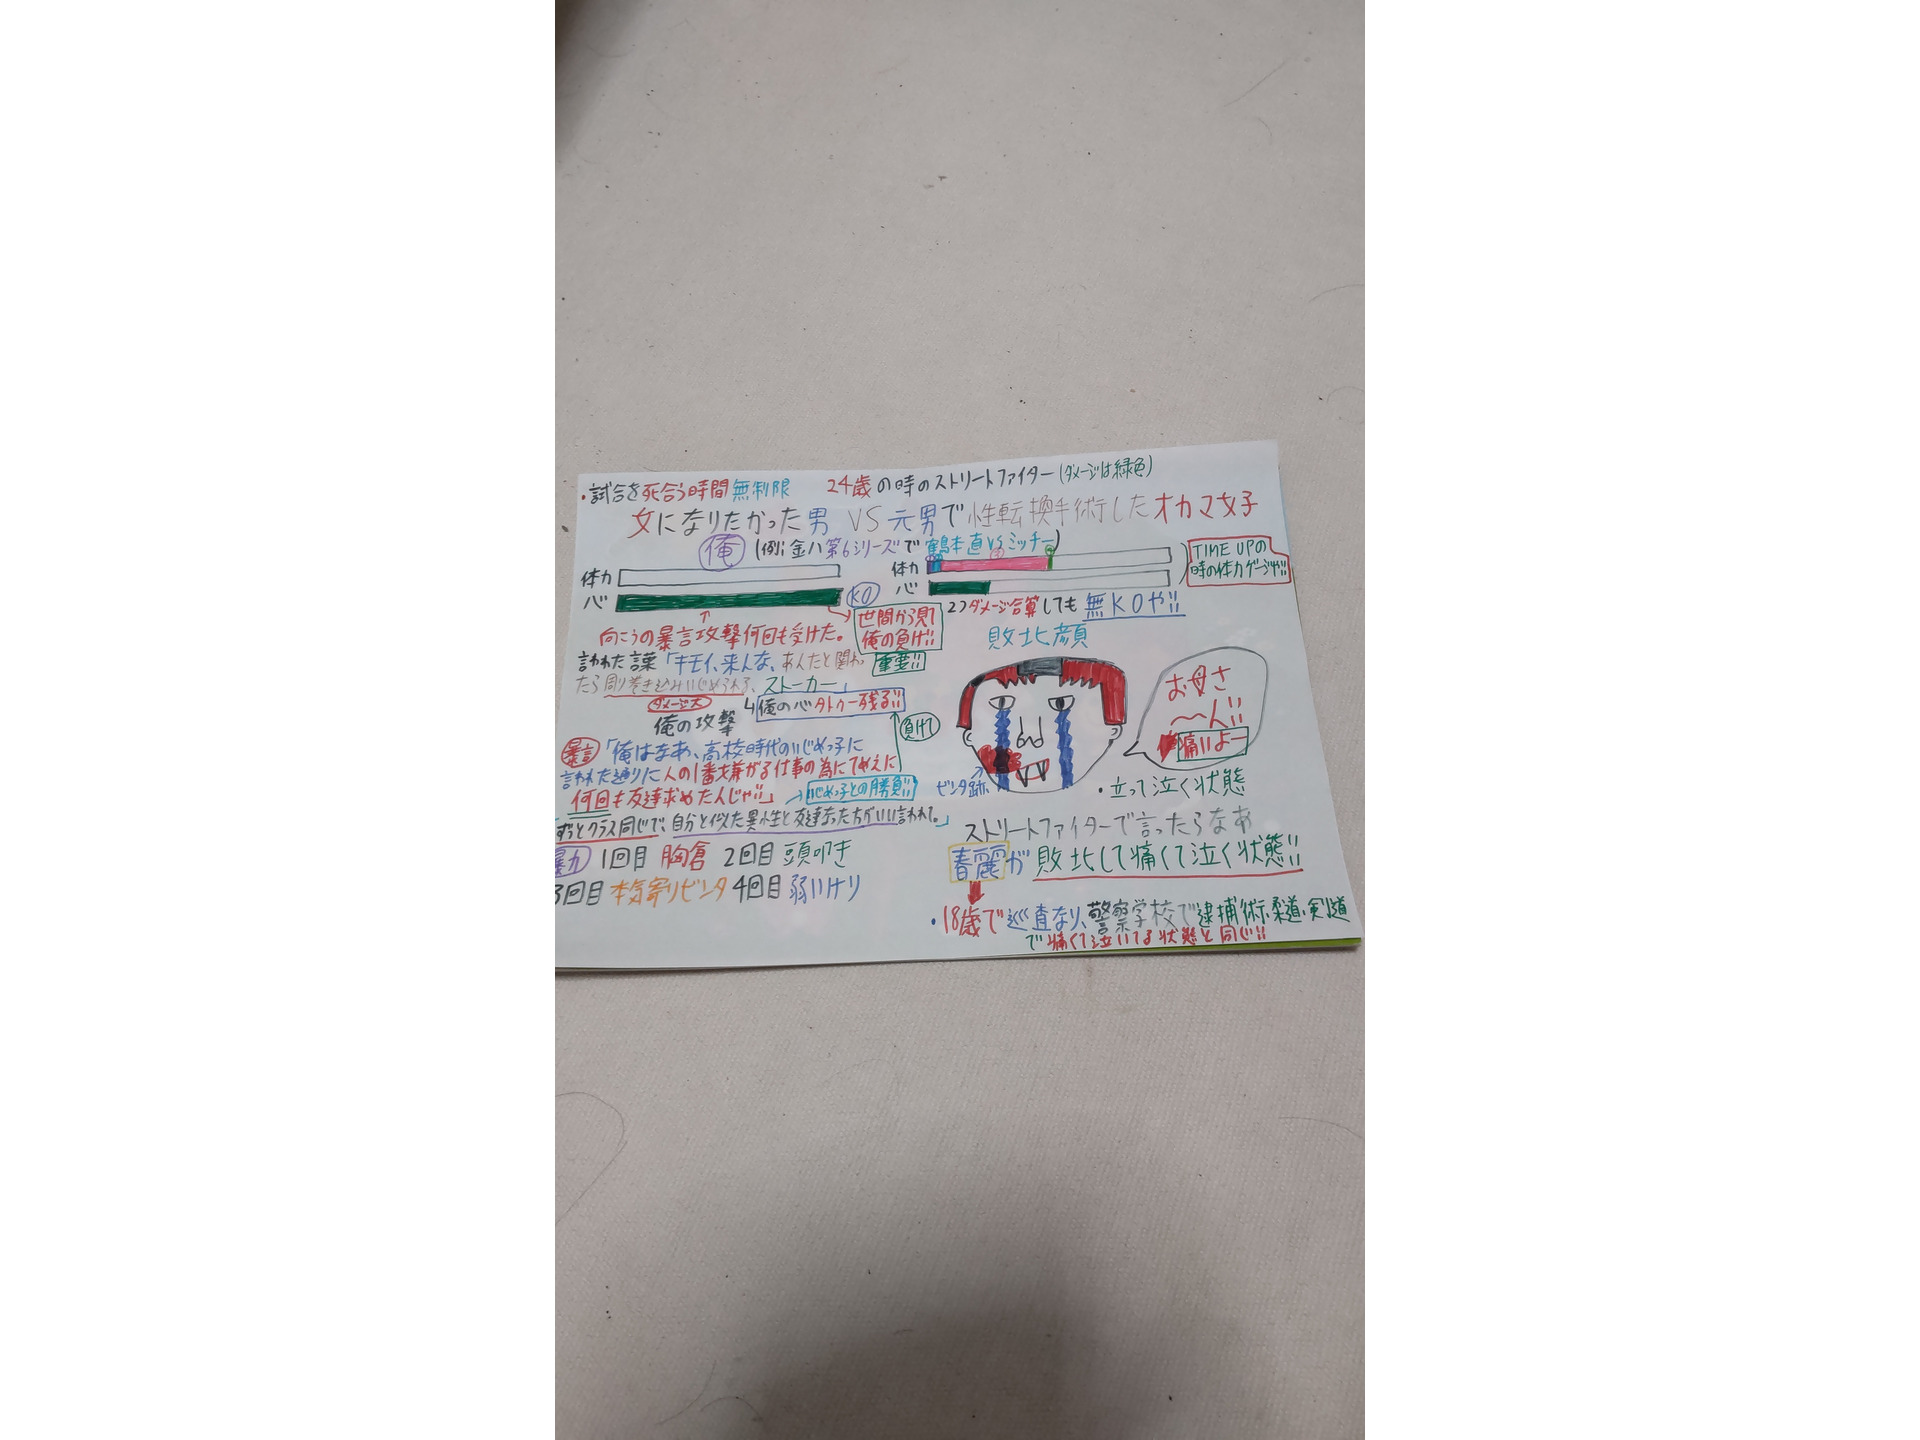 ・試合を死合う時間無制限 24歳の時のストリートファイター(ダメージは緑色)
女になりたかった男 VS 元男で性転換手術したオカマ女子
俺 (例:金八第6シリーズで鶴本直VSミッチー)
体力
心 KO
体力
心
TIME UPの
時の体力ゲージや!!
↑
向こうの暴言攻撃何回も受けた。
世間から見て
俺の負け!!
重要!!
2つダメージ合算しても無KOや!!
言われた言葉「キモイ、来んな、あんたと関わっ
たら周り巻き込みいじめられる、ストーカー」
ダメージ大
↳俺の心タトゥー残る!!
俺の攻撃
負けて
暴言「俺はなあ、高校時代のいじめっ子に
言われた通りに人の1番嫌がる仕事の為にてめえに
何回も友達求めたんじゃ!!」→いじめっ子との勝負!!
「ずっとクラス同じで、自分と似た異性と友達なった方がいい言われて。」
暴力 1回目 胸倉 2回目 頭叩き
3回目 本気寄りビンタ 4回目 弱いけり
敗北顔
お母さ
〜ん!!
痛いよー
ビンタ跡
・立って泣く状態
ストリートファイターで言ったらなあ
春麗が敗北して痛くて泣く状態!!
・18歳で巡査なり、警察学校で逮捕術、柔道、剣道
で痛くて泣いてる状態と同じ!!